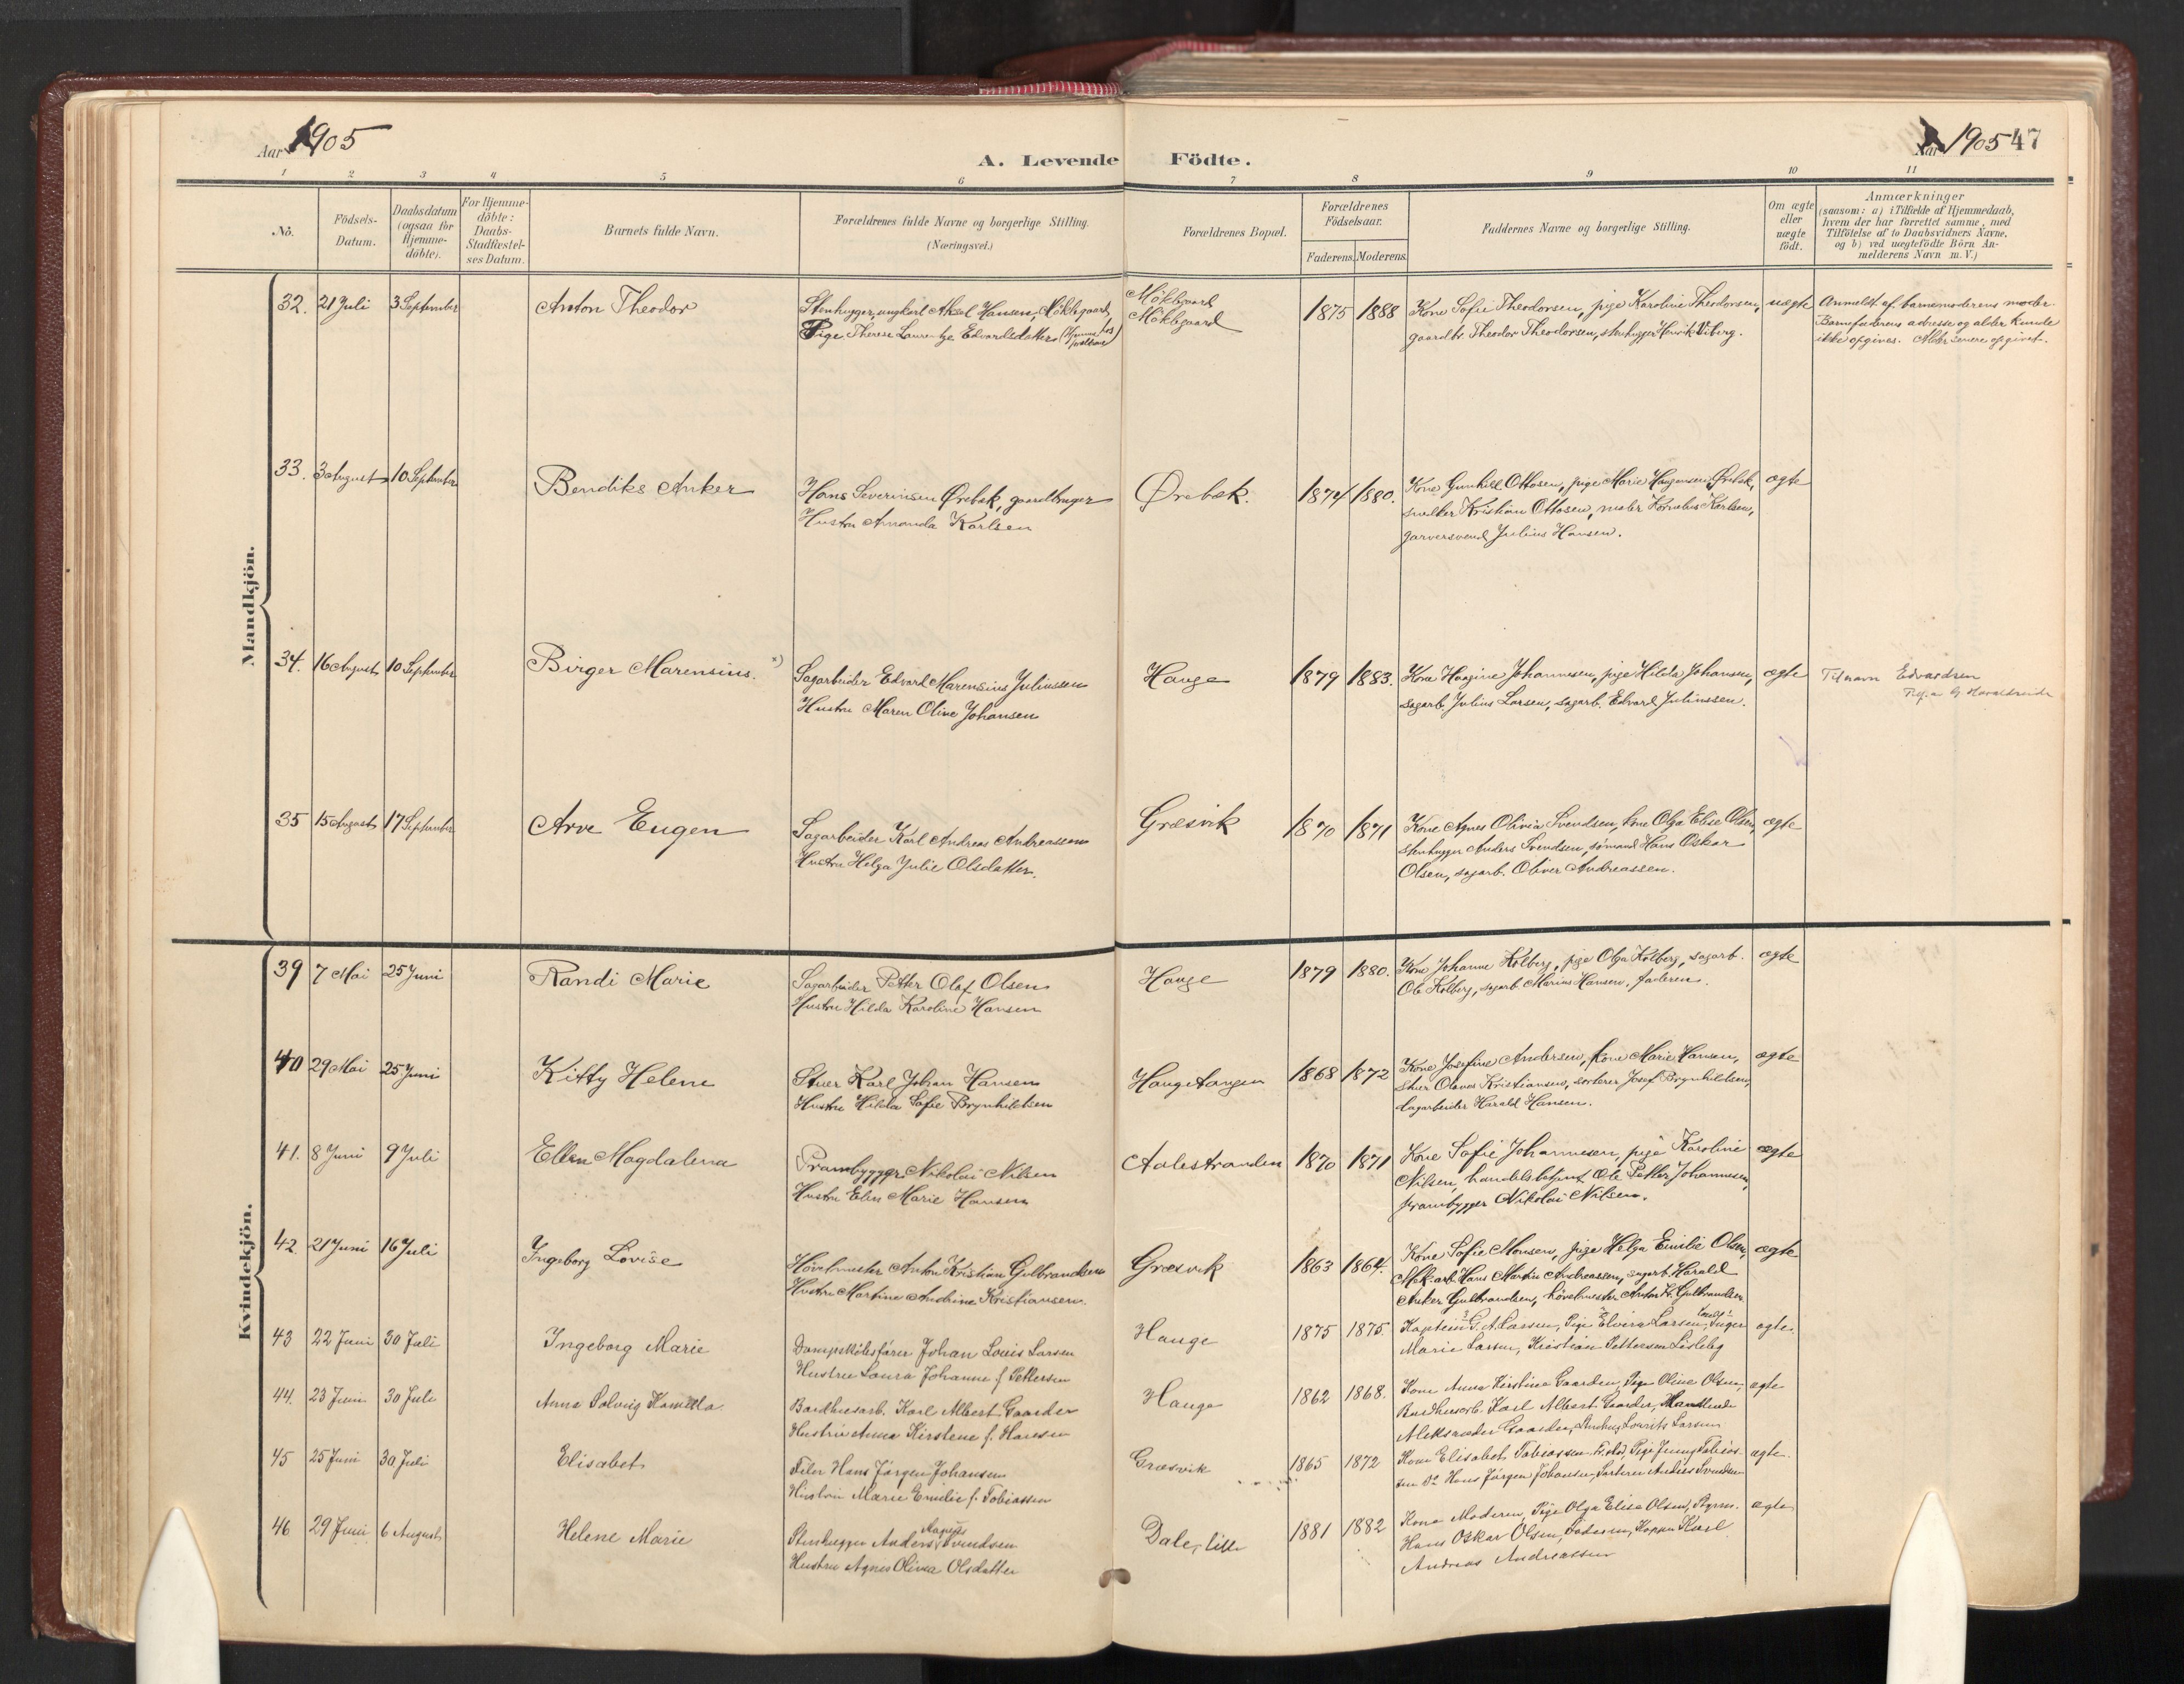 Aar 1905
A. Levende Födte.
Aar 1905 47
1 2 3 4 5 6 7 8 9 10 11
No.
Födsels-Datum.
Daabsdatum (ogsaa for Hjemme-döbte).
For Hjemme-döbte: Daabs-Stadfæstel-ses Datum.
Barnets fulde Navn.
Forældrenes fulde Navne og borgerlige Stilling.
(Næringsvei.)
Forældrenes Bopæl.
Forældrenes Födselsaar.
Faderens. Moderens.
Faddernes Navne og borgerlige Stilling.
Om ægte eller uægte födt.
Anmærkninger
(saasom: a) i Tilfælde af Hjemmedaab,
hvem der har forrettet samme, med
Tilföielse af to Daabsvidners Navne,
og b) ved uægtefödte Börn An-
melderens Navn m. V.)
Mandkjön.
32. 21 Juli 3 September Anton Theodor
Stenhugger, ungkarl Aksel Hansen, Møklegaard,
Pige Therese Laurentze Edvardsdatter
Møklegaard
Møklegaard
1875 1888
Kone Sofie Theodorsen, pige Karoline Theodorsen,
gaardbr. Theodor Theodorsen, stenhugger Henrik Viberg.
uægte
Anmeldt af barnemoderens moder.
Barnefaderens adresse og alder kunde
ikke opgives. Alder senere opgivet.
33. 3 August 10 September Bendiks Anker
Hans Severinsen Ørebæk, gaardbruger
Hustru Amanda Karlsen
Ørebæk. 1874 1880.
Kone Gunhild Ottosen, pige Marie Haagensen Ørebæk,
snelker Kristian Ottosen, maler Kornelius Karlsen,
garversvend Julius Hansen.
ægte
34. 16 August 10 September Birger Marensius. x)
Sagarbeider Edvard Marensius Juliussen
Hustru Maren Oline Johansen
Hauge 1879 1883.
Kone Haagine Johannesen, pige Hilda Johansen,
sagarb. Julius Larsen, sagarb. Edvard Juliussen.
ægte
Tilnavn Edvardsen
35 15 August 17 September Arve Eugen
Sagarbeider Karl Andreas Andreassen
Hustru Helga Julie Olsdatter.
Græsvik 1870 1871
Kone Agnes Olivia Svendsen, kone Olga Elise Olsen,
stenhugger Anders Svendsen, sømand Hans Oskar
Olsen, sagarb. Oliver Andreassen.
ægte
Kvindekjön.
39 7 Mai 25 Juni Randi Marie
Sagarbeider Petter Olaf Olsen
Hustru Hilda Karoline Hansen
Hauge 1879 1880.
Kone Johanne Kolberg, pige Olga Kolberg, sagarb.
Ole Kolberg, sagarb. Marius Hansen, faderen.
ægte
40 29 Mai 25 Juni Kitty Helene
Stuer Karl Johan Hansen
Hustru Hilda Sofie Brynhildsen
Haugetangen 1868 1872
Kone Josefine Andersen, kone Marie Hansen,
stuer Olaves Kristiansen, sorterer Josef Brynhildsen,
sagarbeider Harald Hansen.
ægte
41. 8 Juni 9 Juli Ellen Magdalena
Prambygger Nikolai Nilsen
Hustru Elen Marie Hansen
Aalestranden 1870 1871
Kone Sofie Johannesen, pige Karoline
Nilsen, handelsbetjent Ole Petter Johannesen,
prambygger Nikolai Nilsen.
ægte
42. 21 Juni 16 Juli Ingeborg Lovise
Høvelmester Anton Kristian Gulbrandsen
Hustru Martine Andrine Kristiansen.
Græsvik 1863 1864.
Kone Sofie Monsen, pige Helga Emilie Olsen,
Mek. arb. Hans Martin Andreassen, sagarb. Harald
Anker Gulbrandsen, høvelmester Anton Kr. Gulbrandsen
ægte
43 22 Juni 30 Juli Ingeborg Marie
Dampskibsfører Johan Louis Larsen
Hustru Laura Johanne f. Pettersen
Hauge 1875 1875.
Kaptein G. A. Larsen, Pige Elvira Larsen, Inger
Marie Larsen, Kristian Pettersen Lisleby
ægte.
44. 23 Juni 30 Juli Anna Solveig Kamilla
Bordhusarb. Karl Albert Gaarder
Hustru Anna Kirstene f. Hansen
Hauge 1862 1868.
Kone Anna Kirstine Gaarden, Pige Oline Olsen,
Bordhusarb. Karl Albert Gaarder,
Aleksander Gaarder, Laurits Larsen
ægte
45 25 Juni 30 Juli Elisabet
Filer Hans Jørgen Johansen
Hustru Marie Emilie f. Tobiassen
Græsvik 1865 1872
Kone Elisabet Tobiassen Fr.stad, Pige Jenny Tobias-
sen Do Hans Jørgen Johansen, Sorterer Anders Svendsen
ægte.
46 29 Juni 6 August Helene Marie
Stenhugger Anders Magnus Svendsen
Hustru Agnes Olivia Olsdatter
Dale, lille 1881 1882
Kone Moderen, Pige Olga Elise Olsen,
Hans Oskar Olsen, Faderen, Karl
Andreas Andreassen
ægte